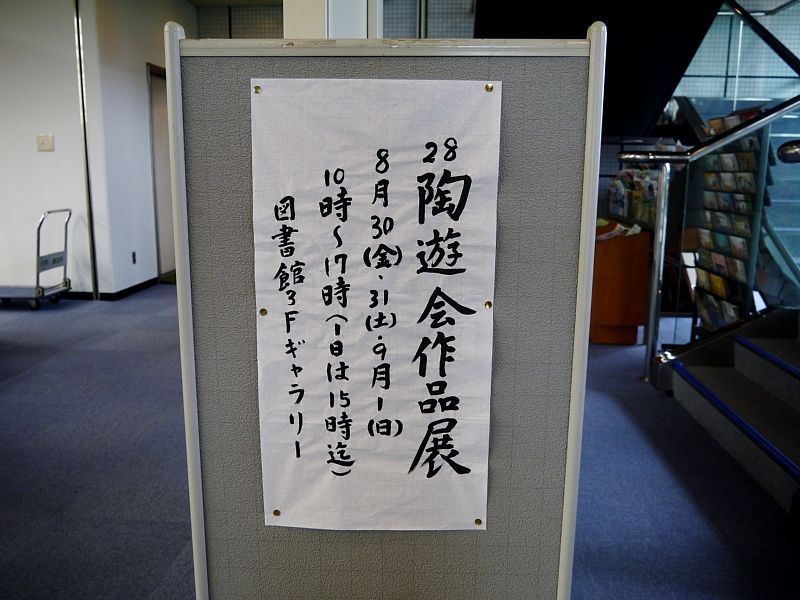 28陶遊会作品展
8月30(金)・31(土)・9月1(日)
10時~17時(1日は15時迄)
図書館3Fギャラリー